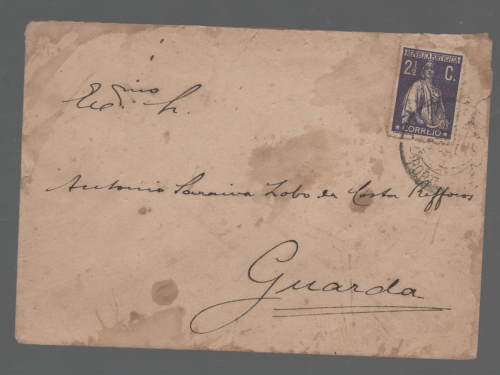 REPUBLICA PORTUGUESA
2½ C.
CORREIO
Exmo Sr.
Antonio Saraiva Lobo da Costa Reffoios
Guarda